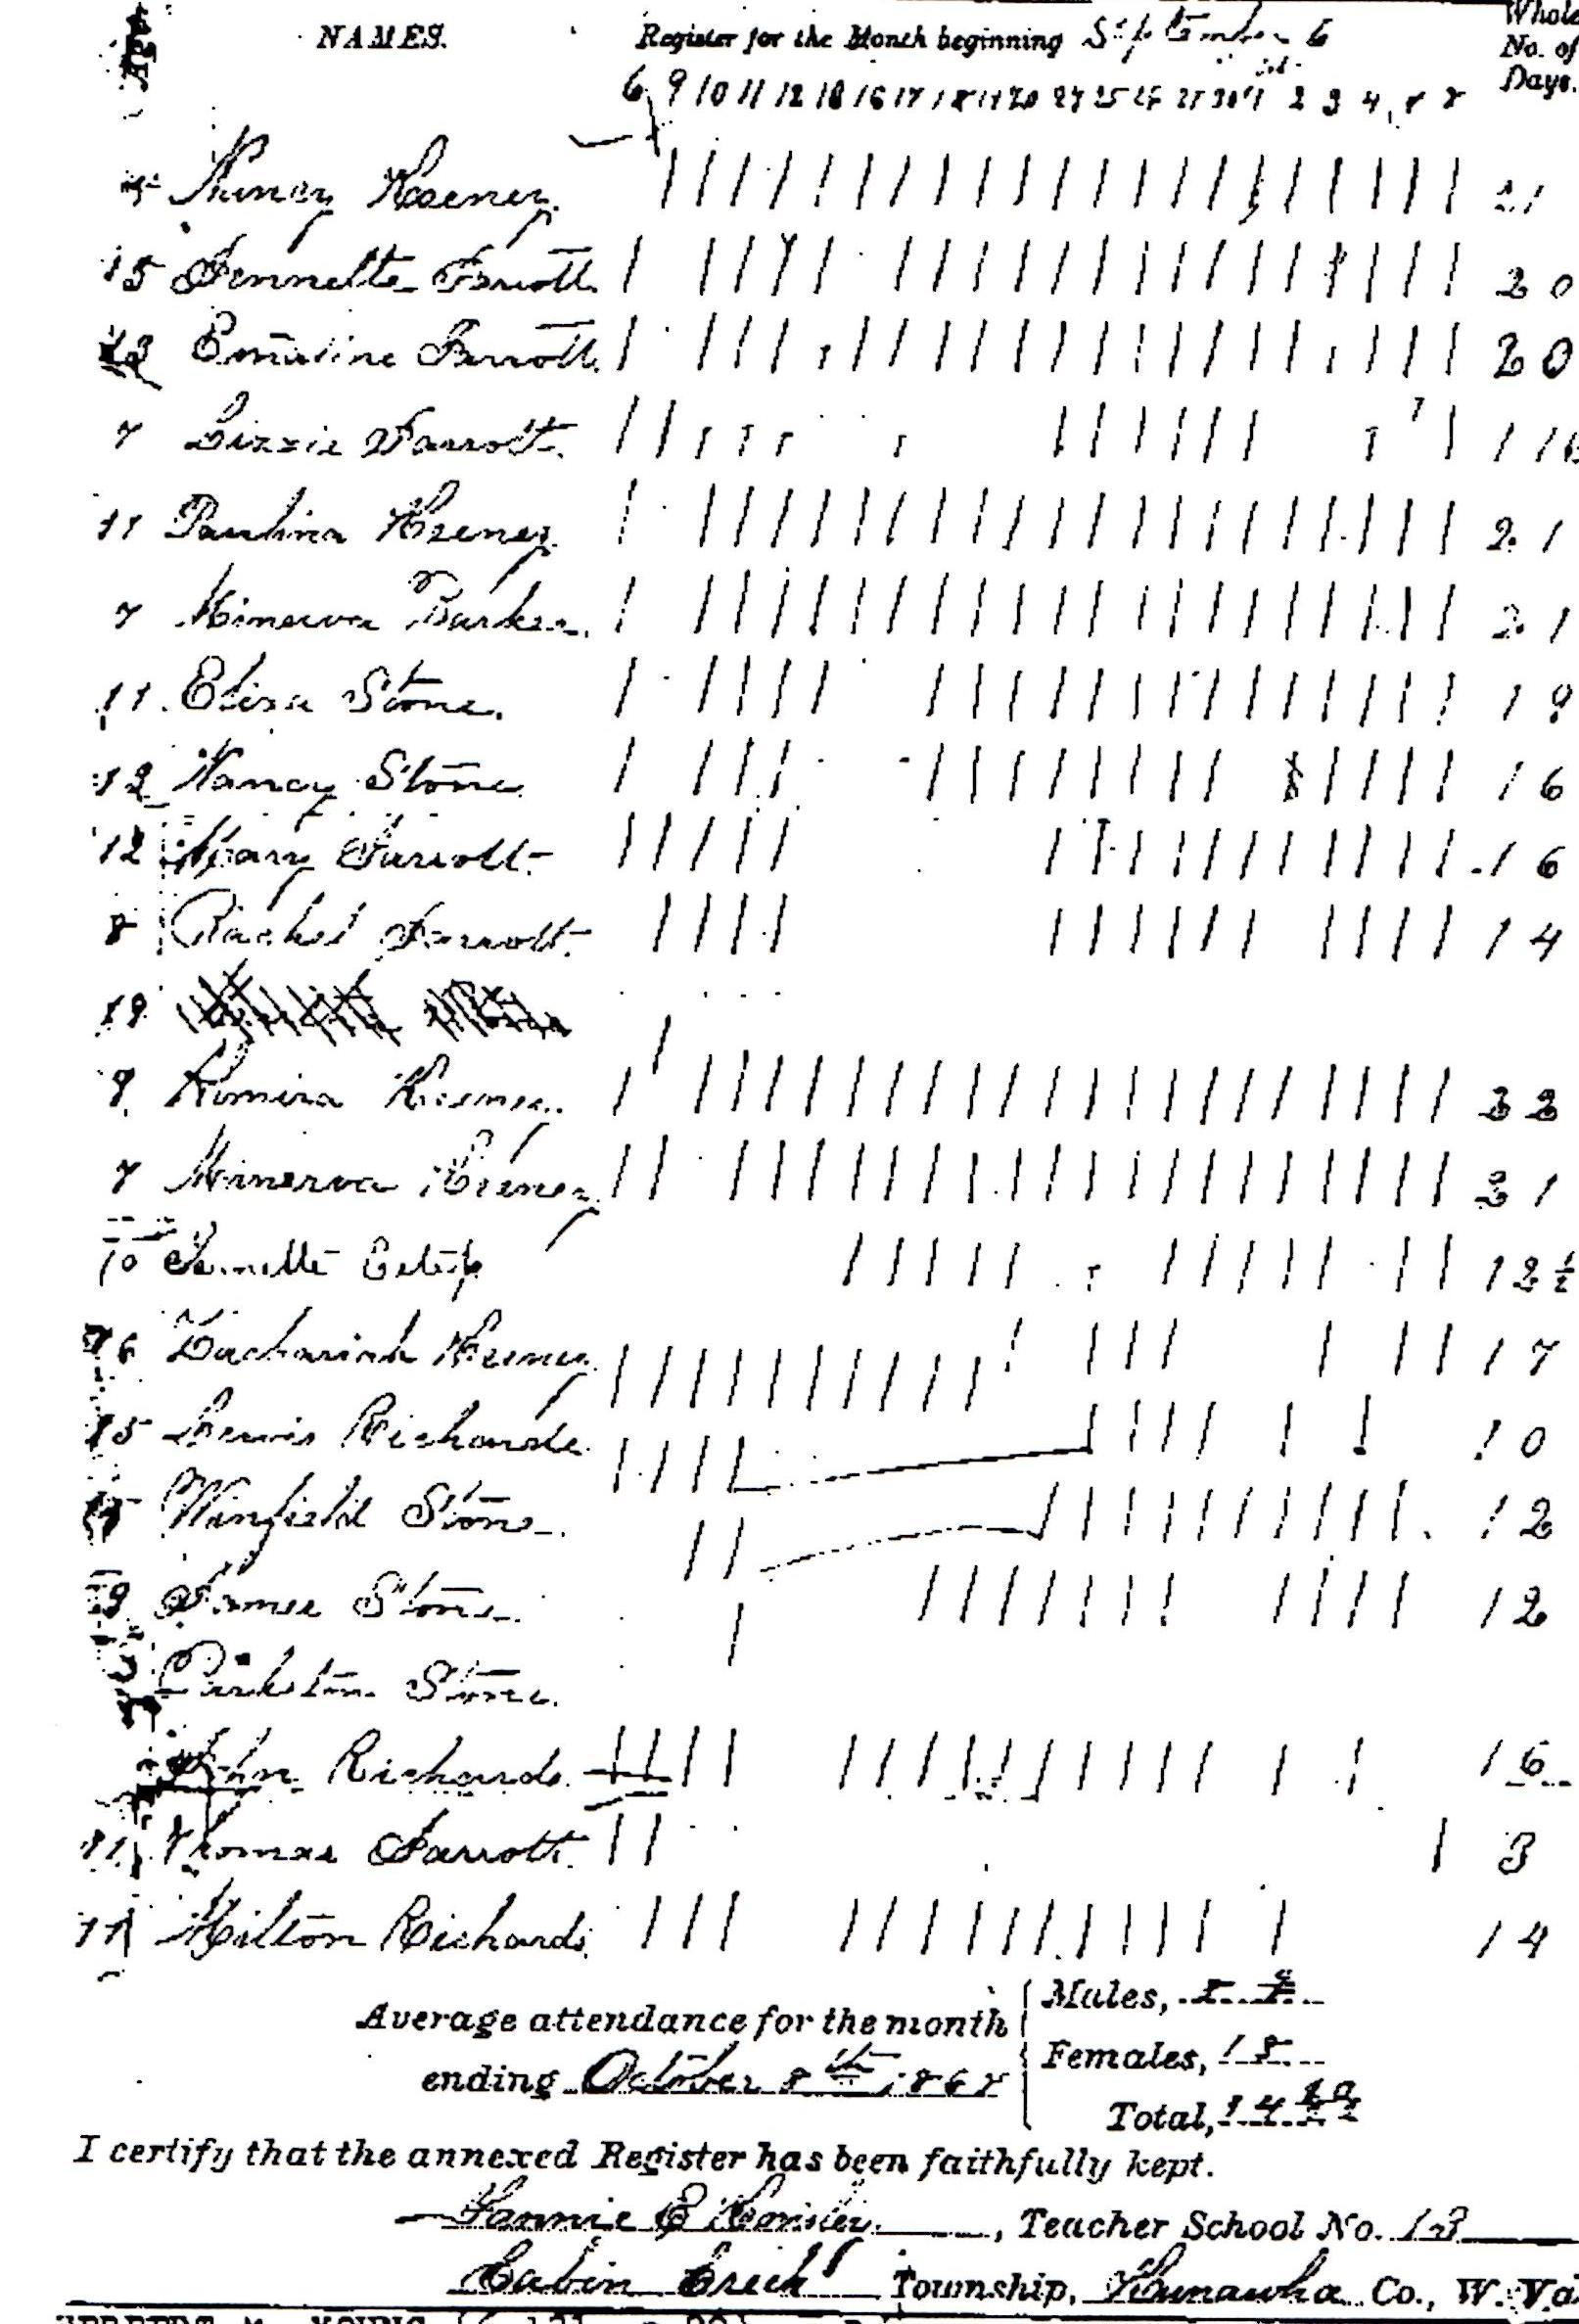 NAMES. Register for the Month beginning September 6 Whole No. of Days.
6 9 10 11 12 13 16 17 18 19 20 24 25 26 27 30 1 2 3 4
Keeney. 21
15 Jennette Jarrott. 20
Emaline Jarrott. 20
7 Lizzie Jarrott.
11 Paulina Keeney. 21
7 Minerva Barker. 21
11. Eliza Stone. 19
12 Nancy Stone 16
12 Mary Jarrott. 16
8 Rachel Jarrott. 14
19
9 Romira Keeney. 22
7 Minerva Keeney 21
10 Jennette Estep 12½
Zachariah Keeney. 17
15 Lewis Richards. 10
Winfield Stone. 12
James Stone. 12
Stone.
John Richards. 16
11 Thomas Jarrott. 3
11 Milton Richards. 14
Average attendance for the month
ending October 8th 1867
Males,
Females,
Total, 14
I certify that the annexed Register has been faithfully kept.
Fannie E , Teacher School No. 13
Cabin Creek Township, Kanawha Co., W. Va.